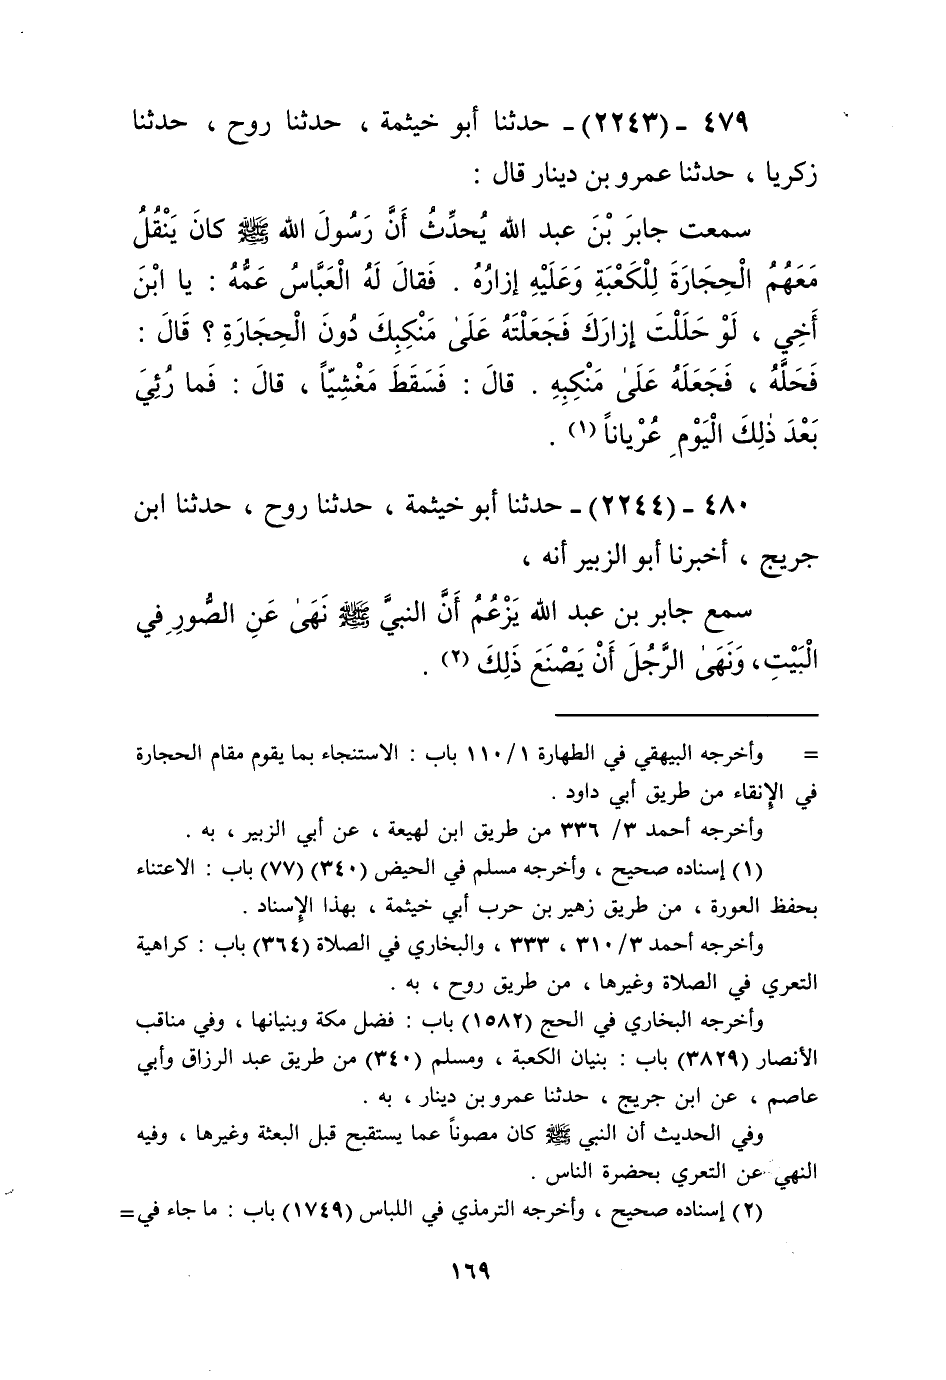 ٤٧٩ ـ (٢٢٤٣) ـ حدثنا أبو خيثمة ، حدثنا روح ، حدثنا
زكريا ، حدثنا عمرو بن دينار قال :
سمعت جابرَ بْنَ عبد الله يُحدِّثُ أَنَّ رَسُولَ الله ﷺ كانَ يَنْقُلُ
مَعَهُمُ الْحِجَارَةَ لِلْكَعْبَةِ وَعَلَيْهِ إزارُهُ . فَقالَ لَهُ الْعَبَّاسُ عَمُّهُ : يا ابْنَ
أَخِي ، لَوْ حَلَلْتَ إزارَكَ فَجَعَلْتَهُ عَلَىٰ مَنْكِبِكَ دُونَ الْحِجَارَةِ ؟ قَالَ :
فَحَلَّهُ ، فَجَعَلَهُ عَلَىٰ مَنْكِبِهِ . قالَ : فَسَقَطَ مَغْشِيّاً ، قالَ : فَما رُئِيَ
بَعْدَ ذٰلِكَ الْيَوْمِ عُرْياناً (١) .
٤٨٠ ـ (٢٢٤٤) ـ حدثنا أبو خيثمة ، حدثنا روح ، حدثنا ابن
جريج ، أخبرنا أبو الزبير أنه ،
سمع جابر بن عبد الله يَزْعُمُ أَنَّ النبيَّ ﷺ نَهَىٰ عَنِ الصُّورِ في
الْبَيْتِ، وَنَهَىٰ الرَّجُلَ أَنْ يَصْنَعَ ذَلِكَ (٢) .
= وأخرجه البيهقي في الطهارة ١١٠/١ باب : الاستنجاء بما يقوم مقام الحجارة
في الإنقاء من طريق أبي داود .
وأخرجه أحمد ٣/ ٣٣٦ من طريق ابن لهيعة ، عن أبي الزبير ، به .
(١) إسناده صحيح ، وأخرجه مسلم في الحيض (٣٤٠) (٧٧) باب : الاعتناء
بحفظ العورة ، من طريق زهير بن حرب أبي خيثمة ، بهذا الإسناد .
وأخرجه أحمد ٣١٠/٣ ، ٣٣٣ ، والبخاري في الصلاة (٣٦٤) باب : كراهية
التعري في الصلاة وغيرها ، من طريق روح ، به .
وأخرجه البخاري في الحج (١٥٨٢) باب : فضل مكة وبنيانها ، وفي مناقب
الأنصار (٣٨٢٩) باب : بنيان الكعبة ، ومسلم (٣٤٠) من طريق عبد الرزاق وأبي
عاصم ، عن ابن جريج ، حدثنا عمرو بن دينار ، به .
وفي الحديث أن النبي ﷺ كان مصوناً عما يستقبح قبل البعثة وغيرها ، وفيه
النهي عن التعري بحضرة الناس .
(٢) إسناده صحيح ، وأخرجه الترمذي في اللباس (١٧٤٩) باب : ما جاء في=
١٦٩